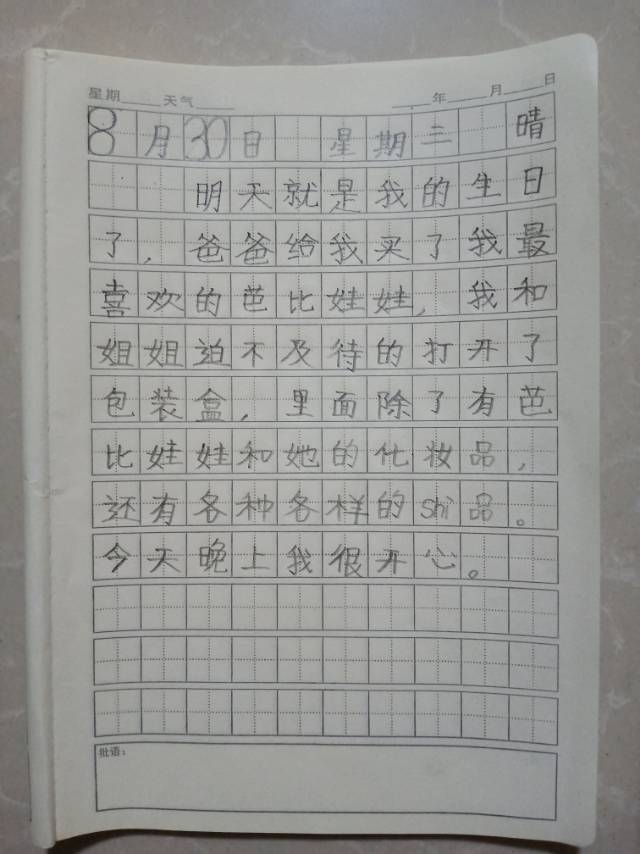 星期____天气____ ____年____月____日
8月30日 星期三 晴
明天就是我的生日
了，爸爸给我买了我最
喜欢的芭比娃娃，我和
姐姐迫不及待的打开了
包装盒，里面除了有芭
比娃娃和她的化妆品，
还有各种各样的shi品。
今天晚上我很开心。
批语：